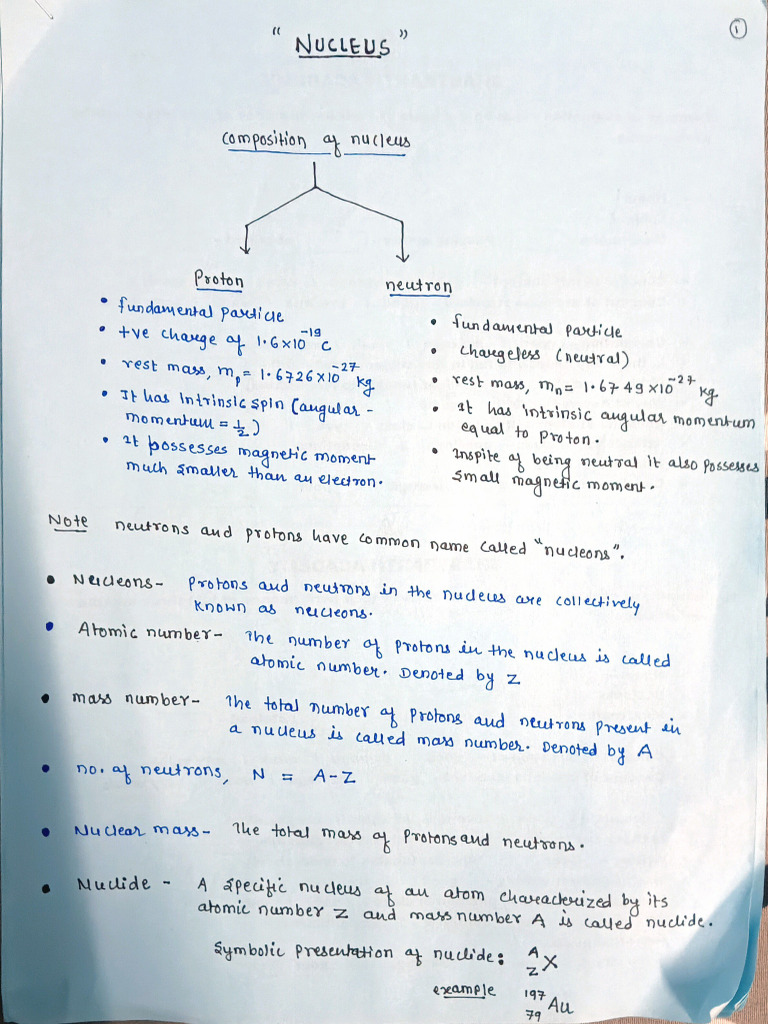 ①
"NUCLEUS"
Composition of nucleus
Proton
• fundamental particle
• +ve charge of 1.6×10⁻¹⁹ C
• rest mass, mₚ = 1.6726×10⁻²⁷ kg
• It has Intrinsic spin (angular-
momentum = ½)
• It possesses magnetic moment
much smaller than an electron.
neutron
• fundamental particle
• Chargeless (neutral)
• rest mass, mₙ = 1.6749×10⁻²⁷ kg
• It has intrinsic angular momentum
equal to proton.
• Inspite of being neutral it also possesses
small magnetic moment.
Note neutrons and protons have common name called "nucleons".
• Nucleons- Protons and neutrons in the nucleus are collectively
known as nucleons.
• Atomic number- The number of protons in the nucleus is called
atomic number. Denoted by Z
• mass number- The total number of protons and neutrons present in
a nucleus is called mass number. Denoted by A
• no. of neutrons, N = A-Z
• Nuclear mass- The total mass of protons and neutrons.
• Nuclide - A specific nucleus of an atom characterized by its
atomic number Z and mass number A is called nuclide.
Symbolic presentation of nuclide: ᴬ_Z X
example ¹⁹⁷₇₉Au